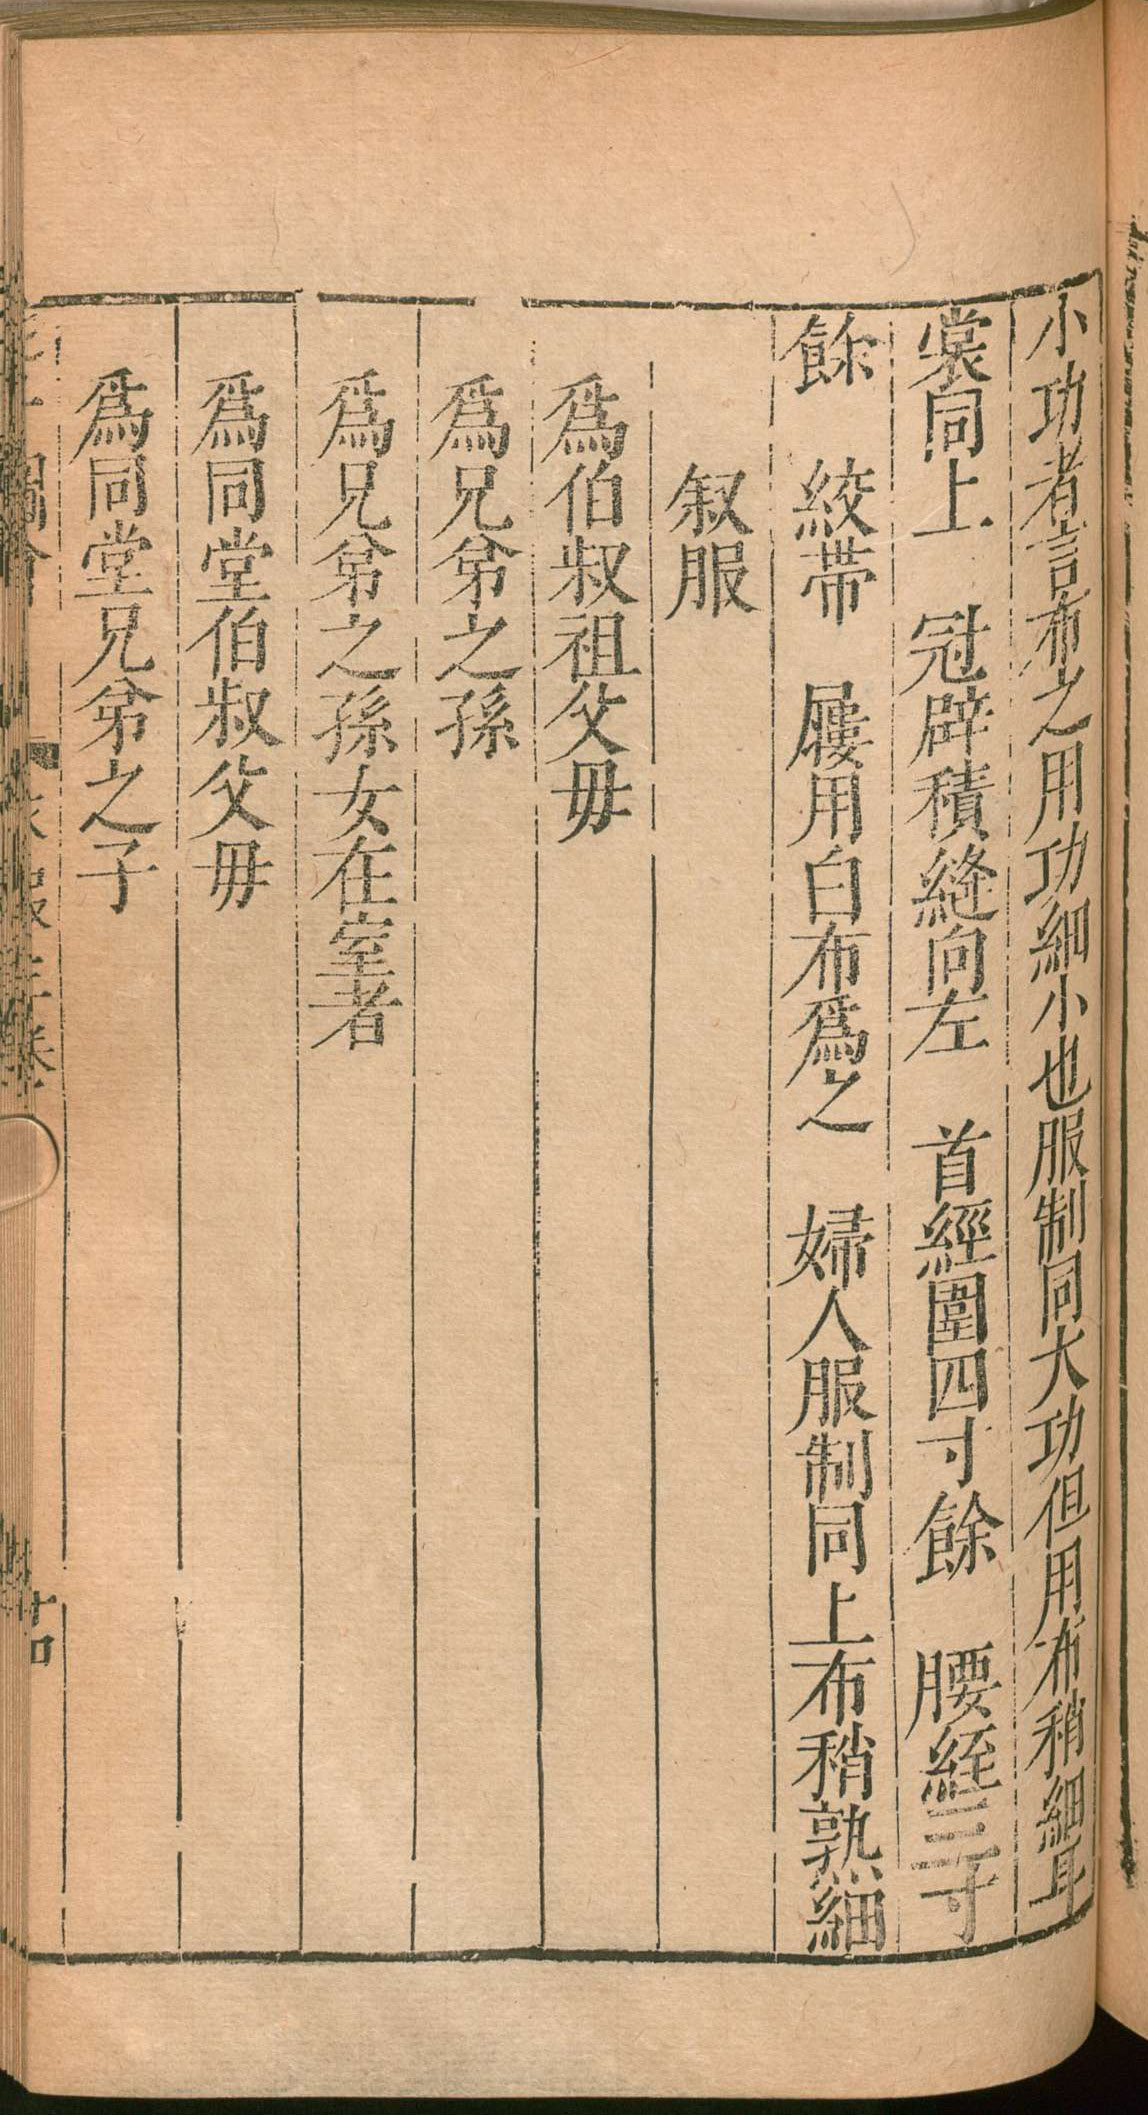 小功者言布之用功細小也服制同大功但用布稍細耳
裳同上　冠辟積縫向左　首經圍四寸餘　腰絰三寸
餘　絞帶　屨用白布爲之　婦人服制同上布稍熟細
叙服
爲伯叔祖父母
爲兄弟之孫
爲兄弟之孫女在室者
爲同堂伯叔父母
爲同堂兄弟之子